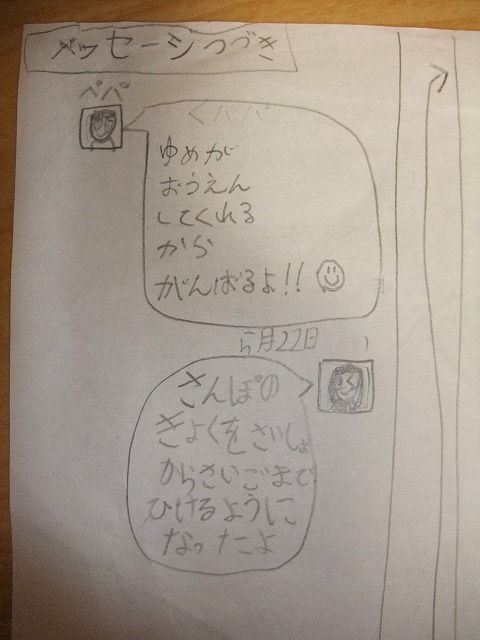 メッセージつづき
パパ
くパパ
ゆめが
おうえん
してくれる
から
がんばるよ!!
5月22日
さんぽの
きょくをさいしょ
からさいごまで
ひけるように
なったよ